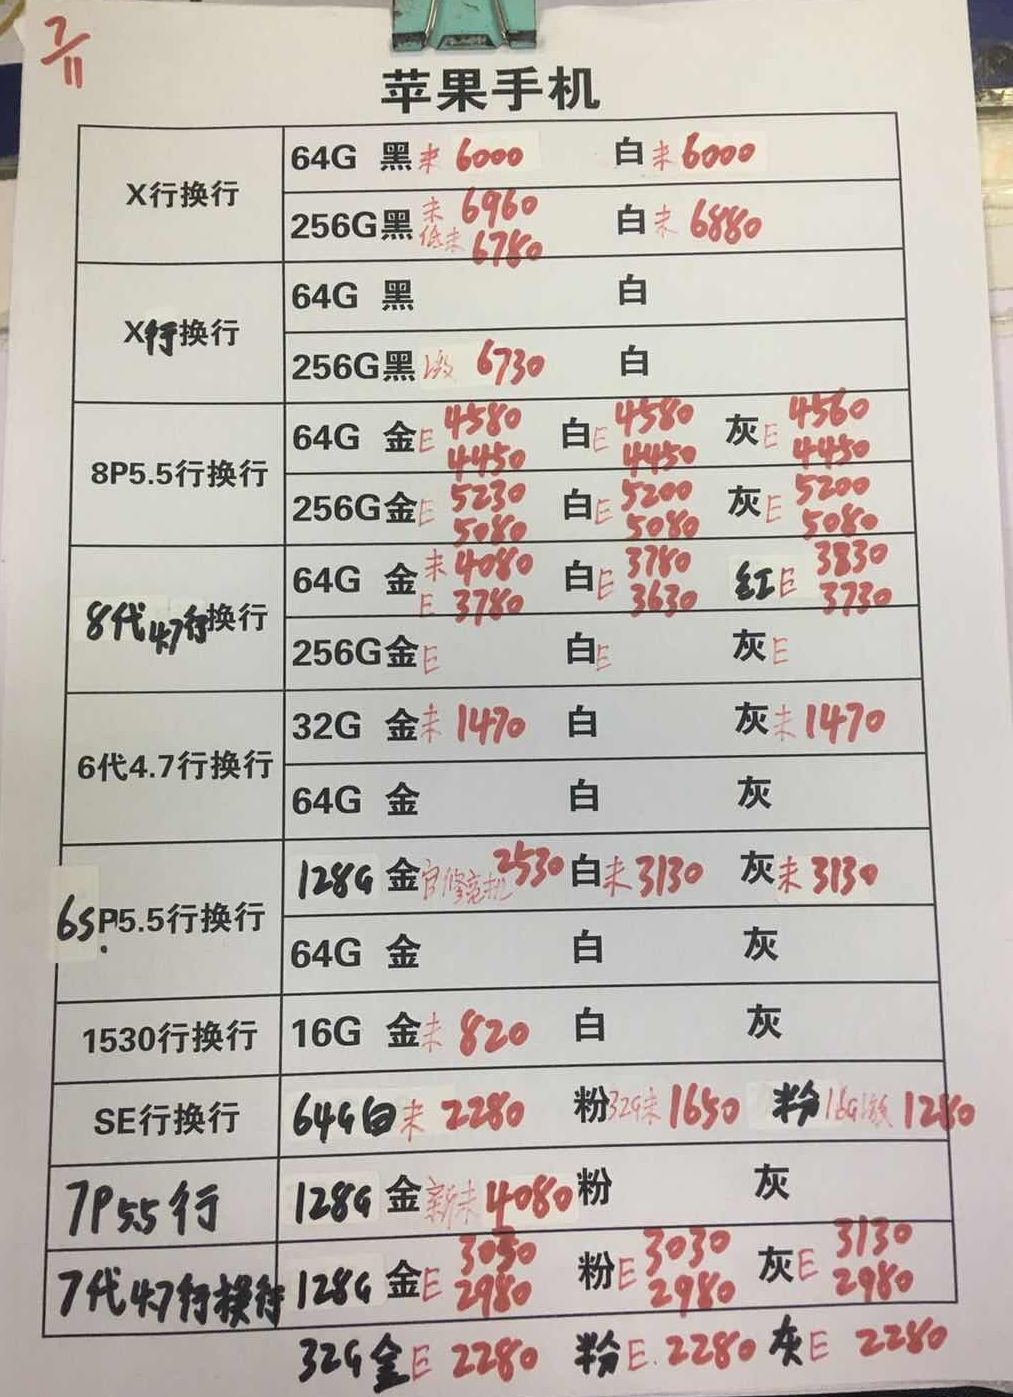 7/11
苹果手机
X行换行
64G 黑 未 6000 白 未 6000
256G黑 未 6960 低未 6780 白 未 6880
X行换行
64G 黑 白
256G黑 激 6730 白
8P5.5行换行
64G 金E 4580 4450 白E 4580 4450 灰E 4560 4450
256G金E 5230 5080 白E 5200 5080 灰E 5200 5080
8代4.7行换行
64G 金 未 4080 E 3780 白E 3780 3630 红E 3830 3730
256G金E 白E 灰E
6代4.7行换行
32G 金未 1470 白 灰未 1470
64G 金 白 灰
6SP5.5行换行
128G 金 官修亮机 2530 白未 3130 灰未 3130
64G 金 白 灰
1530行换行
16G 金未 820 白 灰
SE行换行
64G白未 2280 粉32G未 1650 粉16G激 1280
7P5.5行
128G 金 新未 4080 粉 灰
7代4.7行换行
128G 金E 3050 2980 粉E 3030 2980 灰E 3130 2980
32G金E 2280 粉E. 2280 灰E 2280